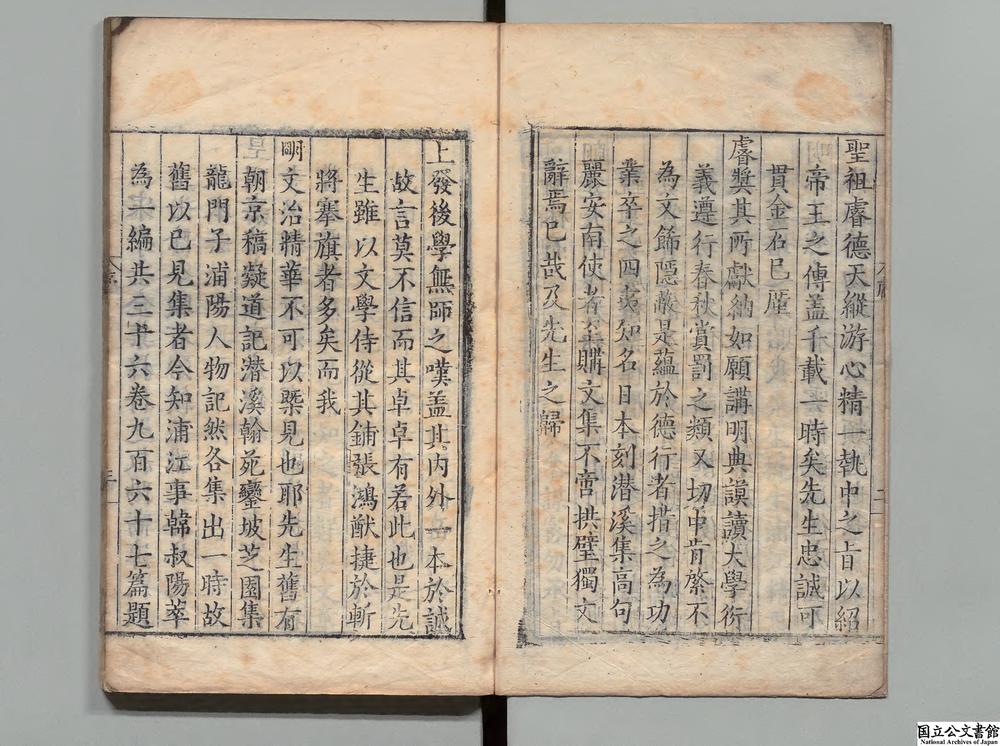 聖祖睿德天縱游心精一執中之旨以紹
帝王之傳盖千載一時矣先生忠誠可
貫金石已
睿奬其所獻納如願講明典謨讀大學衍
義遵行春秋賞罰之類又切中肯綮不
為文餙隠蔽是蘊於德行者措之為功
業卒之四夷知名日本刻潛溪集高句
麗安南使者至購文集不啻拱璧獨文
辭焉已哉及先生之歸
上發後學無師之嘆盖其内外一本於誠
故言莫不信而其卓卓有若此也是先
生雖以文學侍從其鋪張鴻猷捷於斬
將搴旗者多矣而我
明文治精華不可以槩見也耶先生舊有
朝京稿凝道記潜溪翰苑鑾坡芝園集
龍門子浦陽人物記然各集出一時故
舊以已見集者今知浦江事韓叔陽萃
為一編共三十六卷九百六十七篇題
国立公文書館
National Archives of Japan